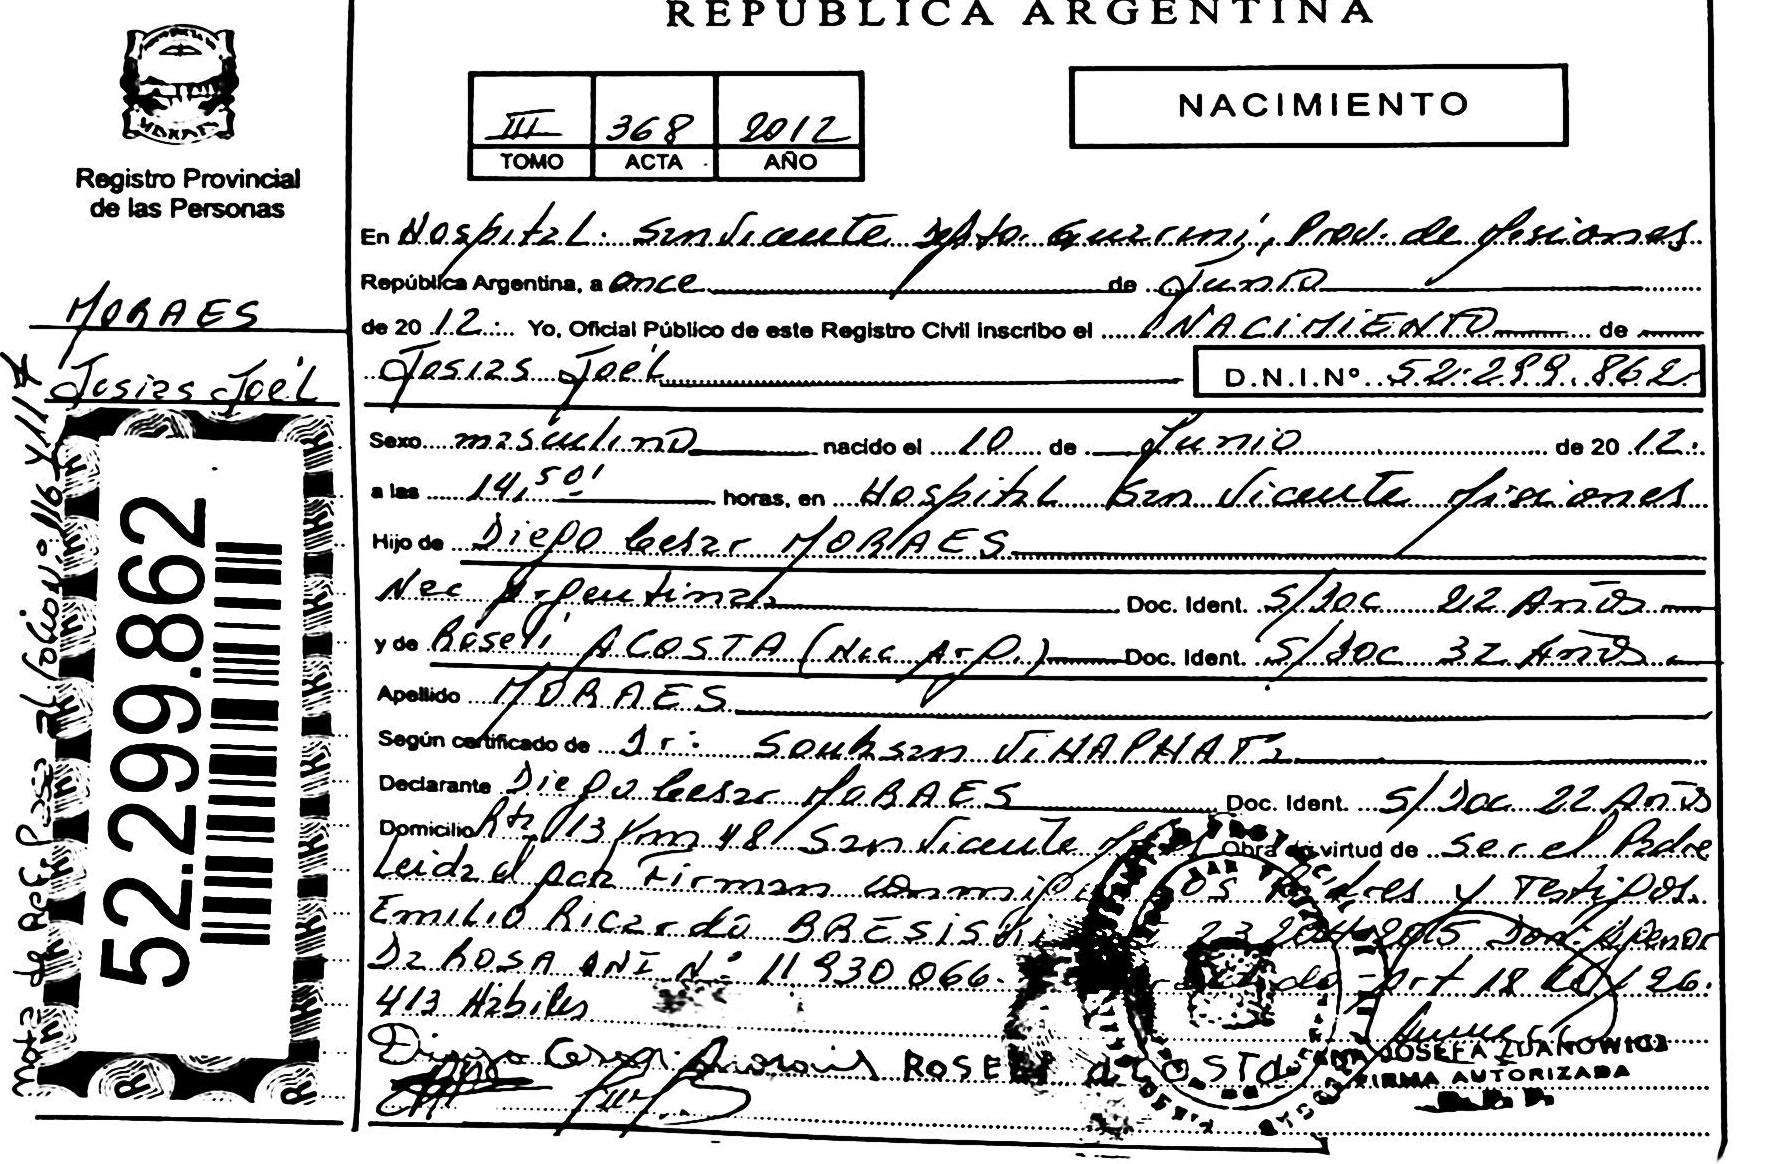 REPUBLICA ARGENTINA
MISIONES
Registro Provincial
de las Personas
MORAES
Josias Joél
52.299.862
Nota de Ref. Pasa al folio Nº 116 y 117
III 368 2012
TOMO ACTA AÑO
NACIMIENTO
En Hospital San Vicente Dpto. Guarani, Prov. de Misiones
República Argentina, a once de Junio
de 2012 Yo, Oficial Público de este Registro Civil inscribo el NACIMIENTO de
Josias Joél D.N.I.Nº 52.299.862
Sexo masculino nacido el 10 de Junio de 2012.
a las 14,50' horas, en Hospital San Vicente Misiones
Hijo de Diego Cesar MORAES
Nac Argentina Doc. Ident. S/Doc 22 Años
y de Roseli ACOSTA (Nac Arg.) Doc. Ident. S/Doc 32 Años
Apellido MORAES
Según certificado de Dr: Souksan
Declarante Diego Cesar MORAES Doc. Ident. S/Doc 22 Años
Domicilio Rta 13 Km 48 San Vicente Obra en virtud de ser el Padre
Leida el Firman conmigo los Padres y Testigos.
Emilio Ricardo Don: Agenor
Da ROSA DNI Nº 11930066. Art 18 Ley 26.
413 Habiles
Diego Cesar ROSELI ACOSTA
ANA JOSEFA ZDANOWICZ
FIRMA AUTORIZADA
R.P.P.